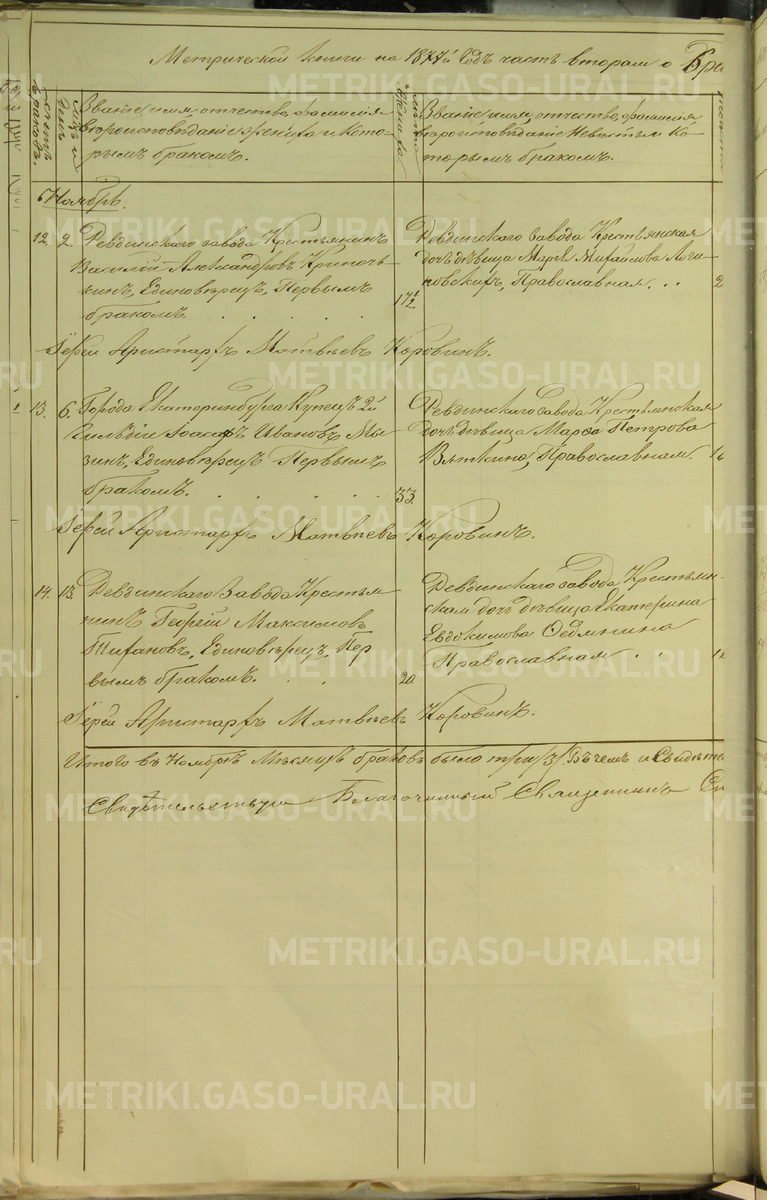 Метрической книги на 1877й Годъ часть вторая о Бра
Счетъ браковъ.
Мѣс. и день
Званіе, имя, отчество, фамилія
вѣроисповѣданіе жениха и кото-
рымъ бракомъ.
Лѣта Жениха
Званіе, имя, отчество, фамилія
вѣроисповѣданіе Невѣсты и ко-
торымъ бракомъ.
Ноябрь.
12. 2. Ревдинскаго завода Крестьянинъ
Василій Александровъ
Единовѣрецъ, Первымъ
бракомъ.
17½
Ревдинскаго завода Крестьянская
дочь дѣвица Марѳа Михайлова Логи-
новскихъ, Православная.
2
Іерей Аристархъ Матвѣевъ Коровинъ.
13. 6. Города Екатеринбурга Купецъ 2й
Гильдіи Іоасафъ Ивановъ Мы-
зинъ, Единовѣрецъ Первымъ
бракомъ.
33.
Ревдинскаго Завода Крестьянская
дочь дѣвица Марѳа Петрова
Вяткина, Православная.
Іерей Аристархъ Матвѣевъ Коровинъ.
14. 13. Ревдинскаго Завода Крестья-
нинъ Георгій Максимовъ
Тифановъ, Единовѣрецъ, Пер-
вымъ бракомъ.
20.
Ревдинскаго завода Крестьян-
ская дочь дѣвица Екатерина
Евдокимова Седянина
Православная
Іерей Аристархъ Матвѣевъ Коровинъ.
Итого въ Ноябрѣ Мѣсяцѣ браковъ было три /3/ Въ чемъ и Свидѣте
Свидѣтельствую Благочинный Священникъ
METRIKI.GASO-URAL.RU